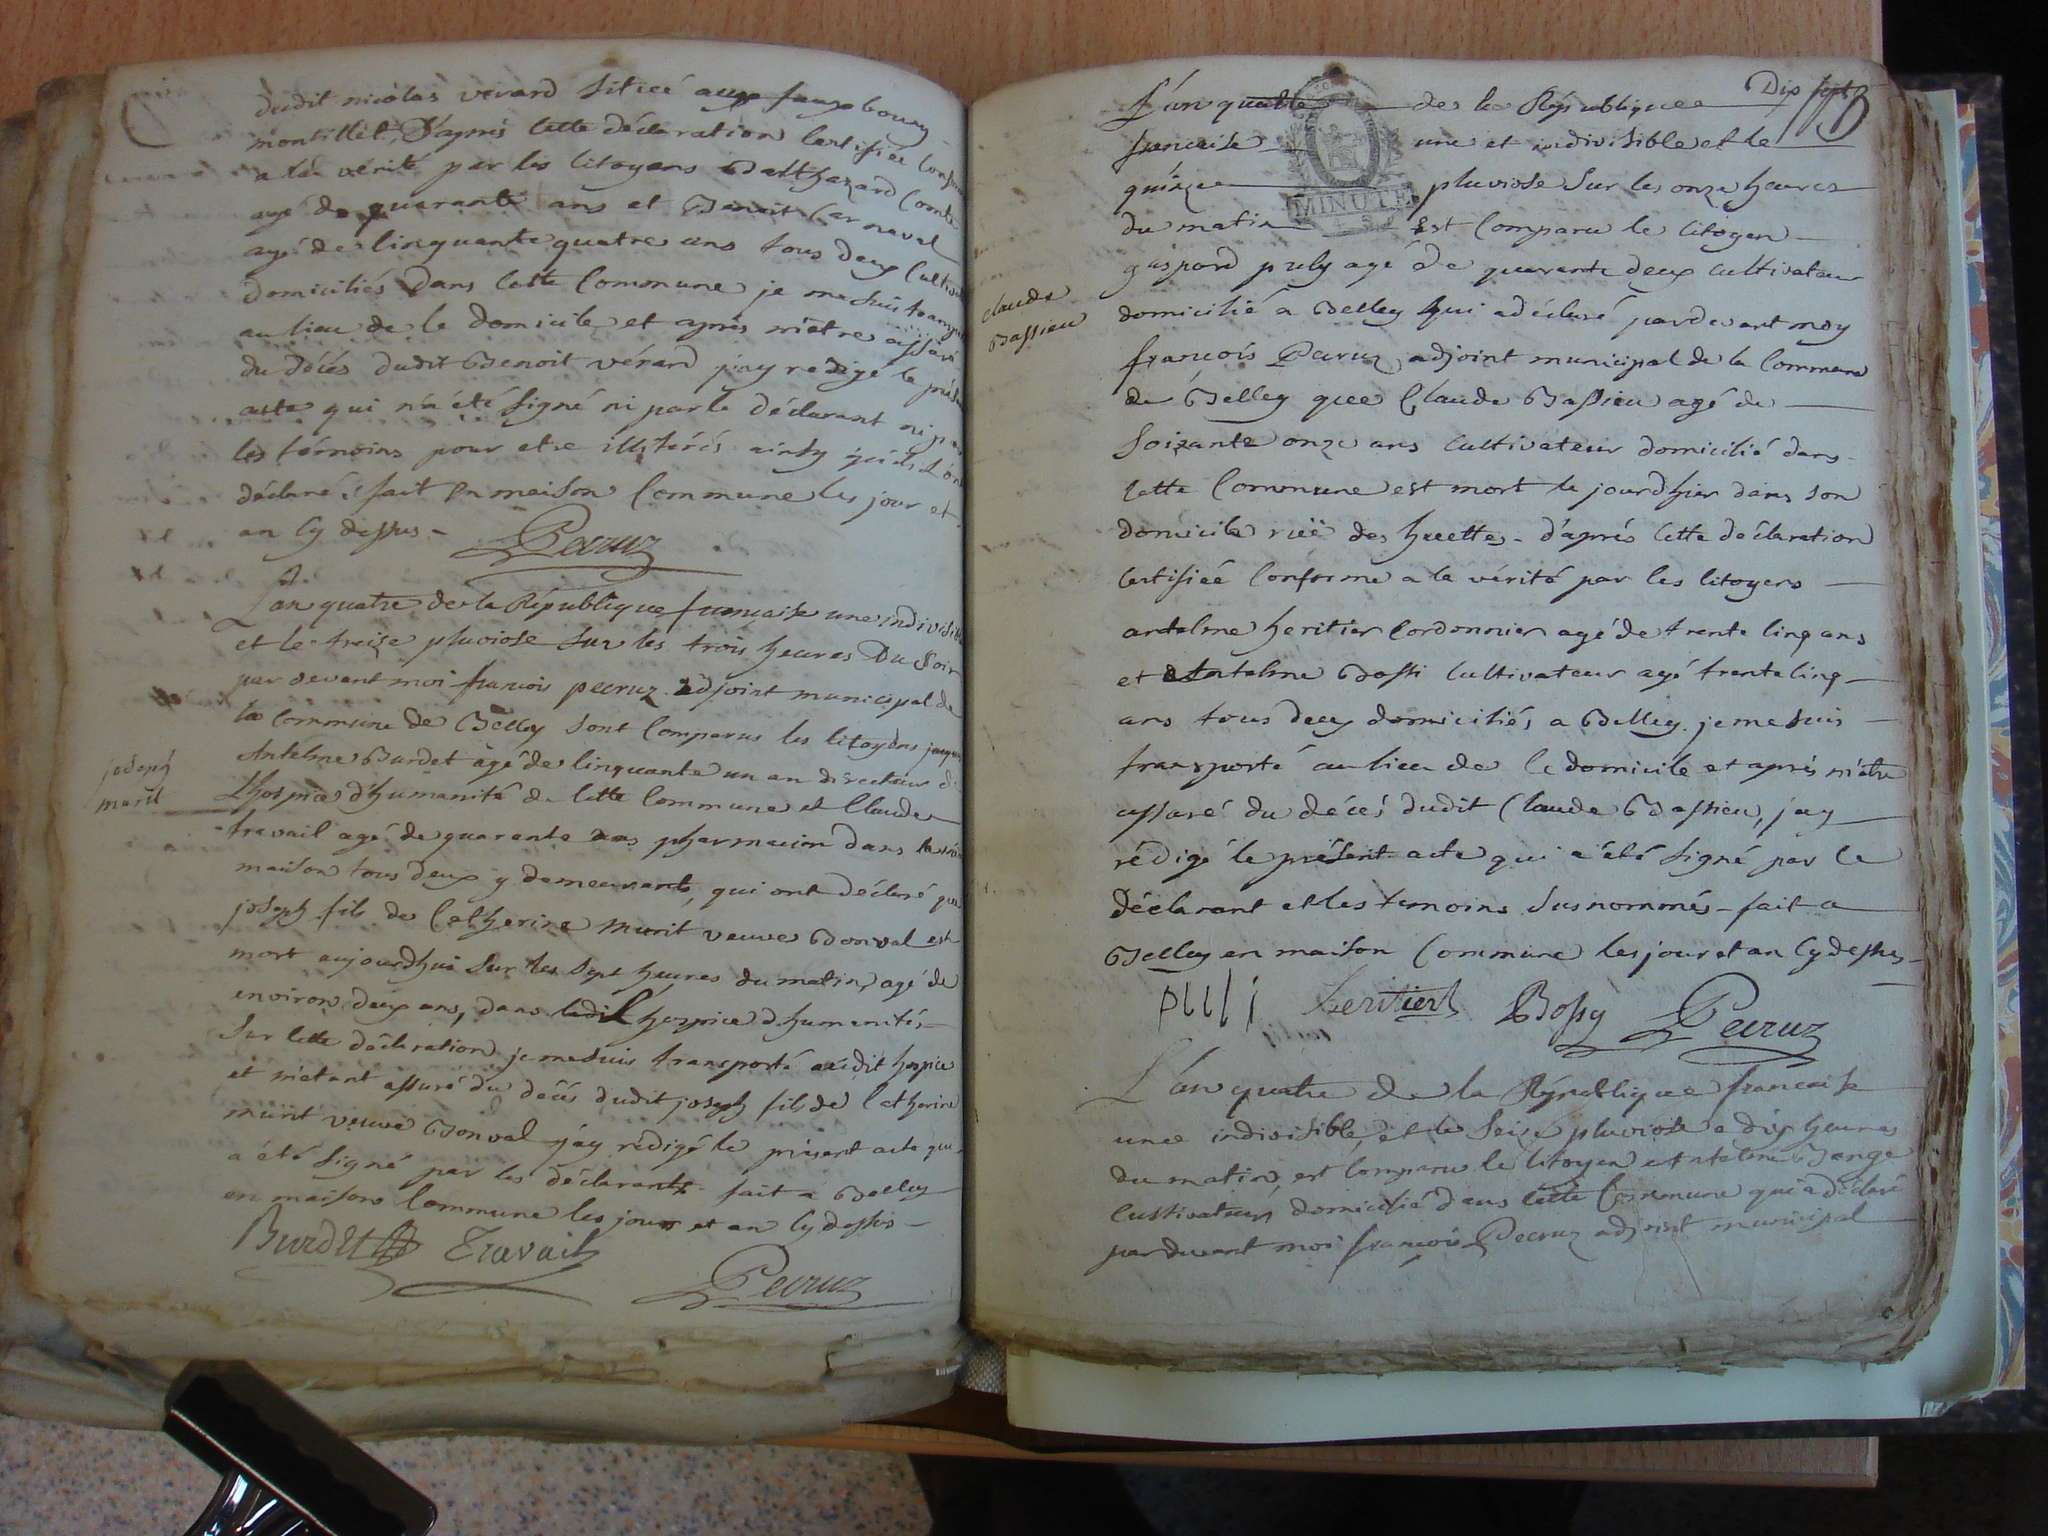 dudit nicolas vérard situé aux fauxbourg
montillet, D'après cette déclaration certifiée conforme
a la vérité par les citoyens Balthazard
agé de quarante ans et Benoit Carnaval
agé de cinquante quatre ans tous deux
domiciliés dans cette Commune je me suis
au lieu de le domicile, et après m'etre assuré
du décés dudit Benoit vérard j'ay redigé le
acte qui n'a été signé ni par le déclarant ni
les témoins pour etre illiterés ainsy
déclaré fait en maison Commune les jour et
an cy dessus
Pecruz
L'an quatre de la République francaise une
et le treize pluviose sur les trois heures Du Soir
par devant moi francois pecruz adjoint municipal de
la Commune de Belley sont Comparus les citoyens
joseph
murit
Antelme Burdet agé de cinquante un an directeur
L'hospice d'humanité de cette Commune et Claude
travail agé de quarante ans pharmacien dans
maison tous deux y demeurants, qui ont déclaré que
joseph fils de Catherine Murit veuve Bonval est
mort aujourdhui sur les sept heures du matin, agé de
environ deux ans, dans ledit hospice d'humanité
Sur cette déclaration je me suis transporté audit hospice
et m'etant assuré du décés dudit joseph fils de Catherine
murit veuve Bonval j'ay rédigé le présent acte qui
a été signé par les déclarants fait a Belley
en maison Commune les jour et an cy dessus
Burdet Travail
Pecruz
Dix sept
L'an quatre de la République
francaise une et indivisible et le
quinze pluviose sur les onze heures
MINUTE
du matin Est Comparu le Citoyen
gaspard pully agé de quarante deux cultivateur
claude
Bassieu
domicilié a Belley qui a déclaré pardevant moy
françois Pecruz adjoint municipal de la Commune
de Belley que Claude Bassieu agé de
soixante onze ans cultivateur domicilié dans
cette Commune est mort le jourdhier dans son
domicile rüe des huettes d'aprés cette déclaration
certifiée Conforme a la vérité par les citoyens
antelme heritier Cordonnier agé de trente cinq ans
et Antelme Bossi cultivateur agé trente cinq
ans tous deux domiciliés a Belley. je me suis
transporté au lieu de le domicile et aprés m'etre
assuré du décés dudit Claude Bassieu, jay
rédigé le présent acte qui a été signé par le
déclarant et les temoins susnommés fait a
Belley en maison Commune les jour et an cy dessus
pulli heritier Bossy Pecruz
L'an quatre de la République francaise
une indivisible et le seize pluviose a dix heures
du matin, est Comparu le citoyen antelme Bonge
cultivateur domicilié dans cette Commune qui a déclaré
par devant moi françois Pecruz adjoint municipal